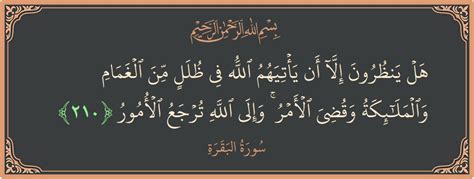 بِسْمِ اللَّهِ الرَّحْمَٰنِ الرَّحِيمِ
هَلْ يَنظُرُونَ إِلَّآ أَن يَأْتِيَهُمُ ٱللَّهُ فِى ظُلَلٍ مِّنَ ٱلْغَمَامِ
وَٱلْمَلَٰٓئِكَةُ وَقُضِىَ ٱلْأَمْرُ ۚ وَإِلَى ٱللَّهِ تُرْجَعُ ٱلْأُمُورُ ﴿٢١٠﴾
سُورَةُ البَقَرَةِ